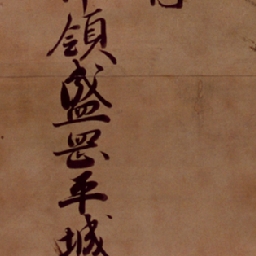 領盛岡平城